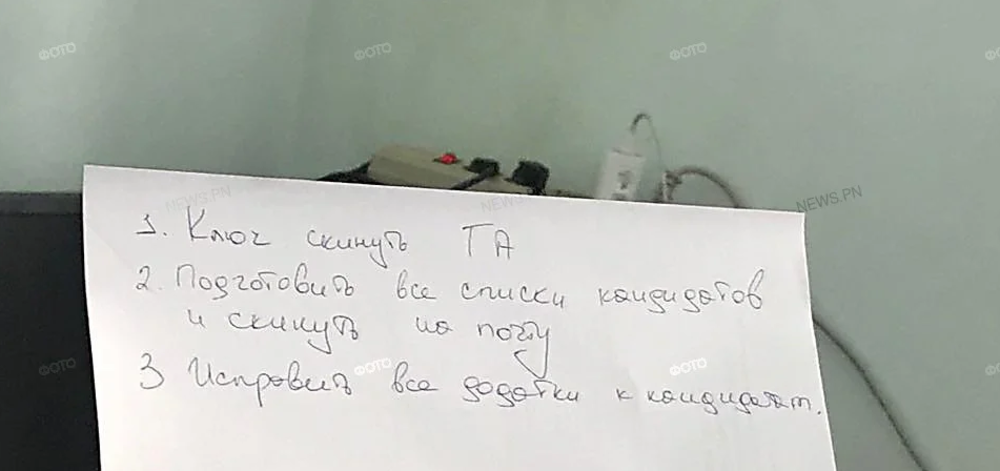 ФОТО ФОТО ФОТО ФОТО
NEWS.PN NEWS.PN NEWS.PN
1. Ключ скинуть ТА
2. Подготовить все списки кандидатов
и скинуть на почту
3 Исправить все додатки к кандидат.
ФОТО ФОТО ФОТО ФОТО